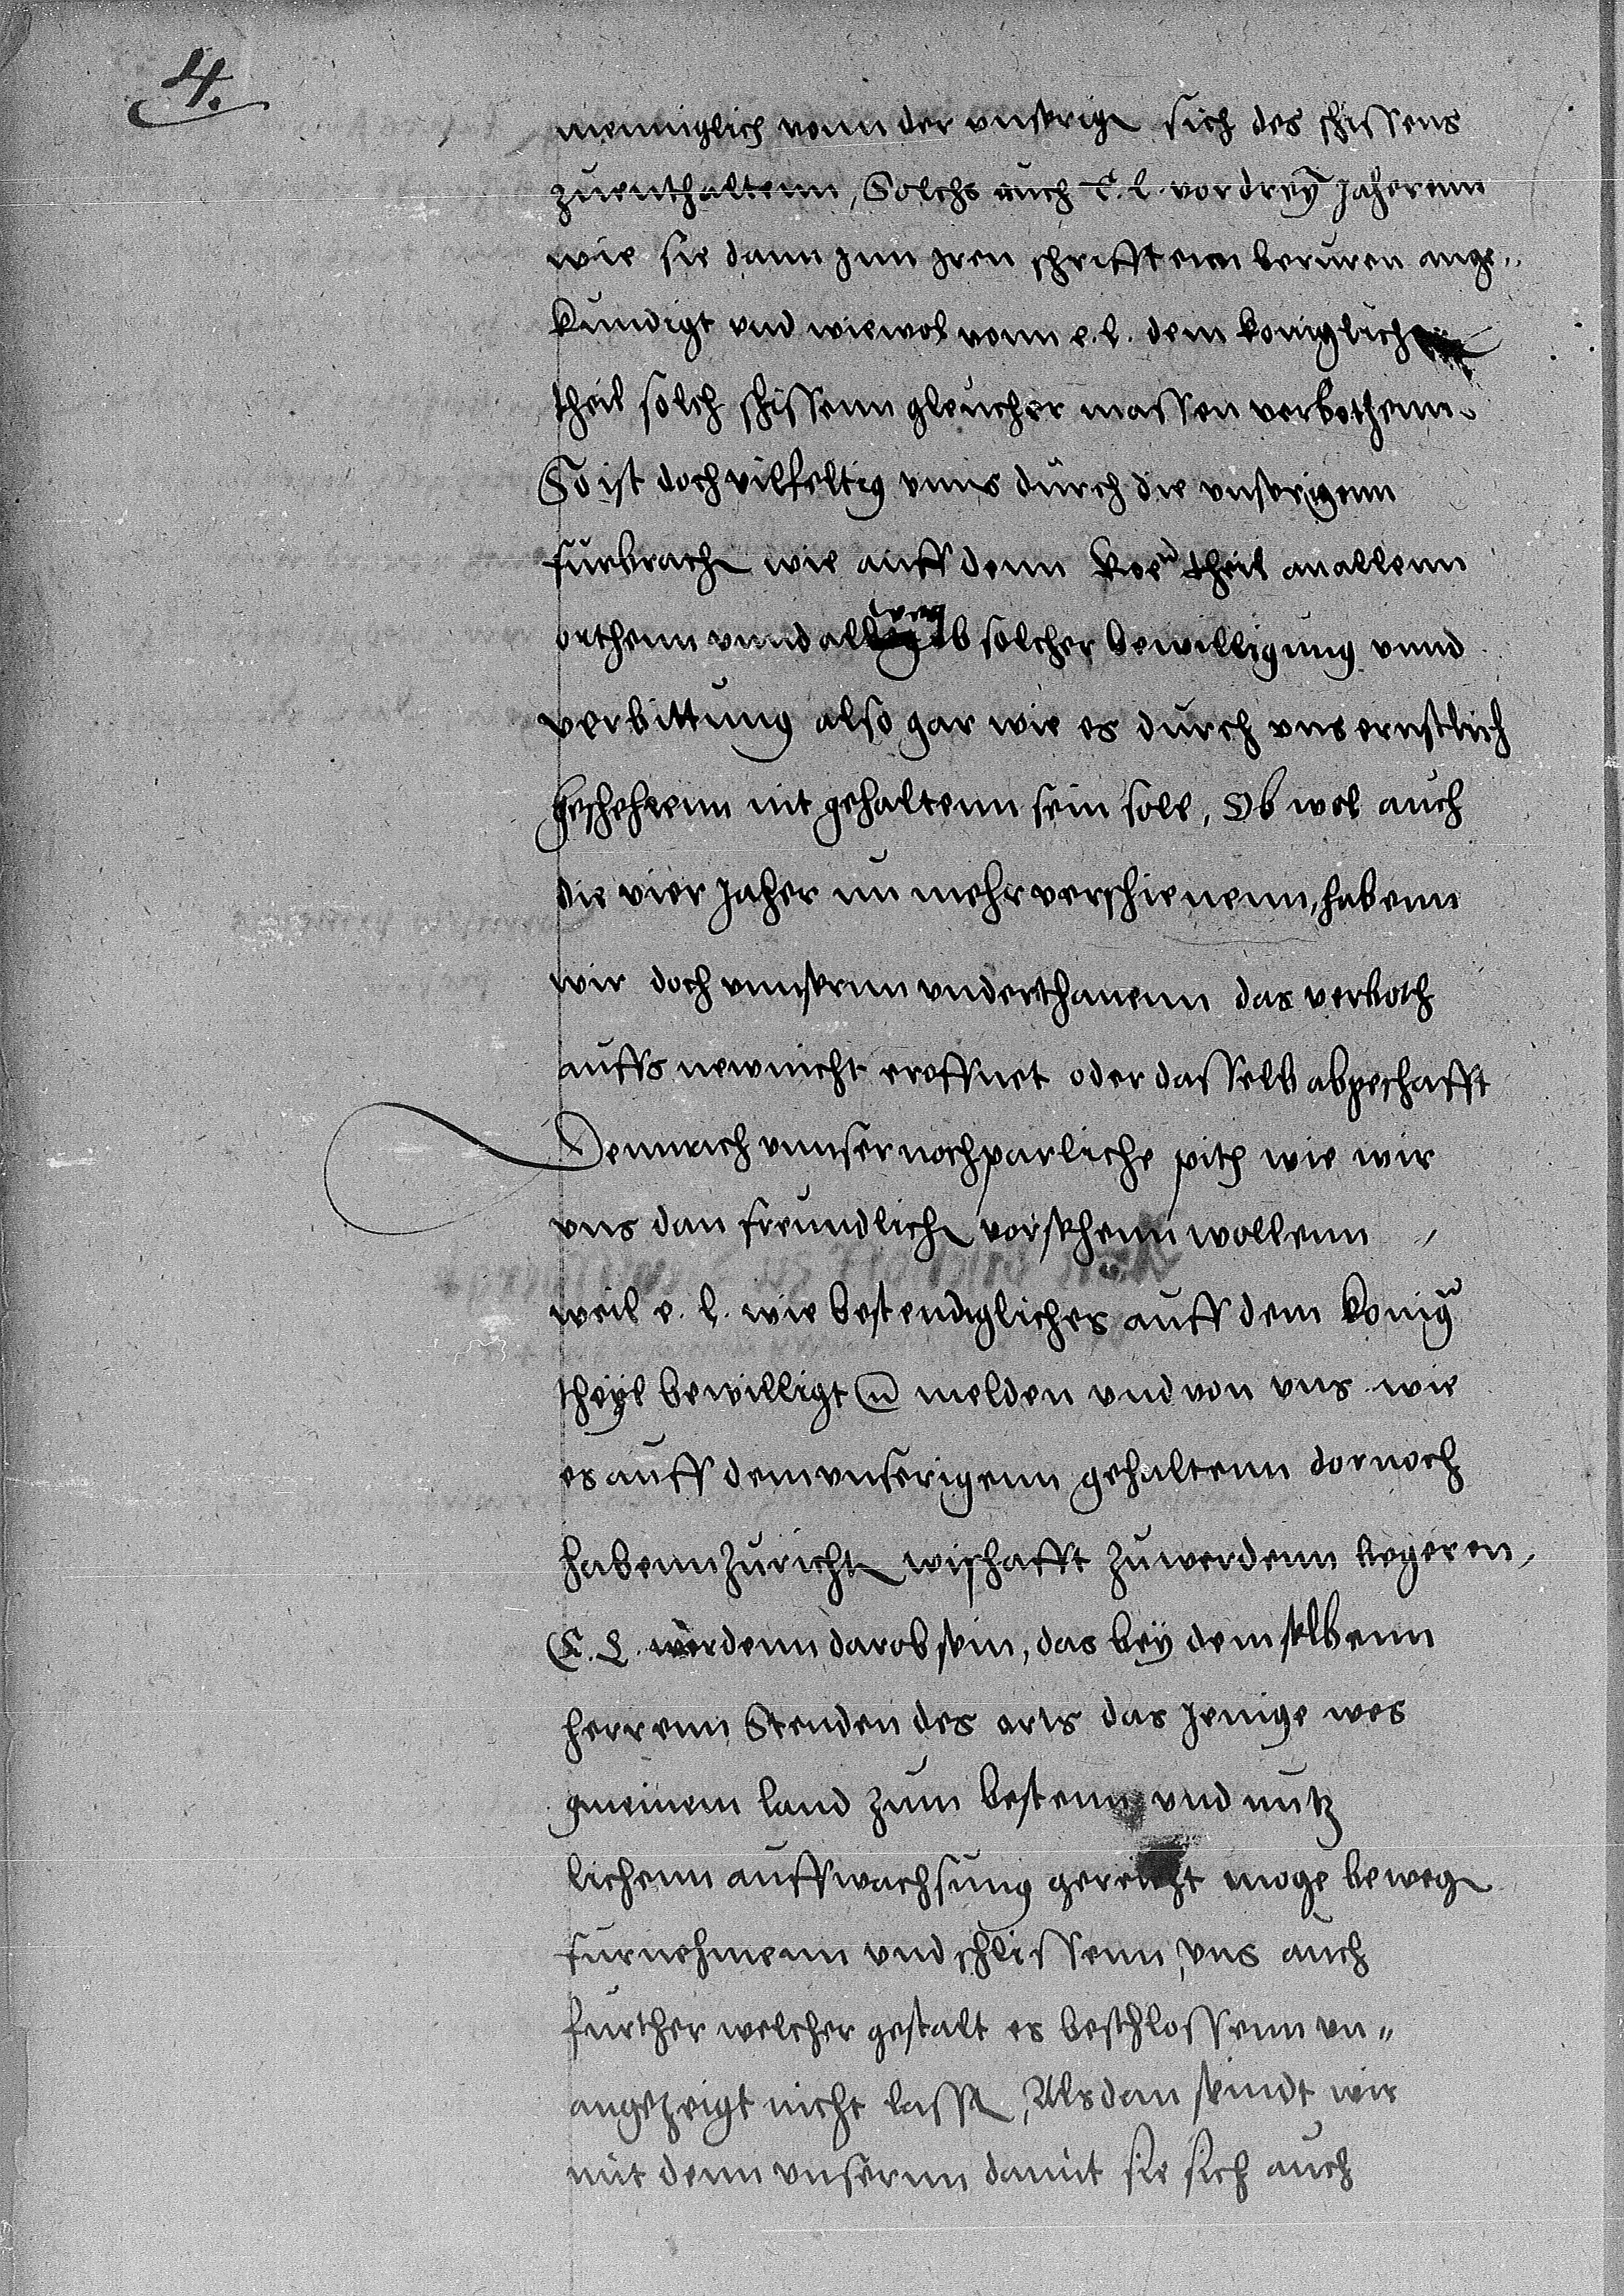 4.
menniglich vonn der vnserign sich des schissens
zuenthaltenn, Solchs auch E. l. vor dreÿ Jaherenn
wie sie dann Jnn Jren schrifftenn beruren ange„
kundigt vnd wiewol vonn e. l. dem koniglich
theil solch schissenn gleucher massen verbothenn
So ist doch vilfeltig vnns durch die vnserigenn
furbrach wie auff denn theil an allenn
orthenn vnnd ob solcher bewilligung vnnd
verbittung also gar wie es durch vns ernstlich
beschehenn nit gehaltenn sein soll, Ob wol auch
die vier Jaher nu mehr verschienenn, habenn
wir doch vnnsernn vnderthanenn das verboth
auffs new nicht eroffnet oder dasselb abgeschafft
Demnach vnnser nochparliche pith wie wir
vns dan freundlich vorsehenn wollenn „
weil e. l. wie bestendiglicher auff dem konig
theÿl bewilligt melden vnd von vns wie
es auff dem vnserigenn gehaltenn dornoch
habenn zuricht wishafft zuwerdenn begeren,
E. L. werdenn darob sein, das beÿ demselbenn
herrenn Stenden des orts das Jenige wes
gmeinem land zum bestenn vnd nutz
lichenn auffwachsung gereicht moge beweg
furnehmenn vnd schlissenn, vns auch
further welcher gestalt es beschlossenn vn„
angezeigt nicht lassn, Alsdan seindt wir
mit denn vnsernn damit sie sich auch